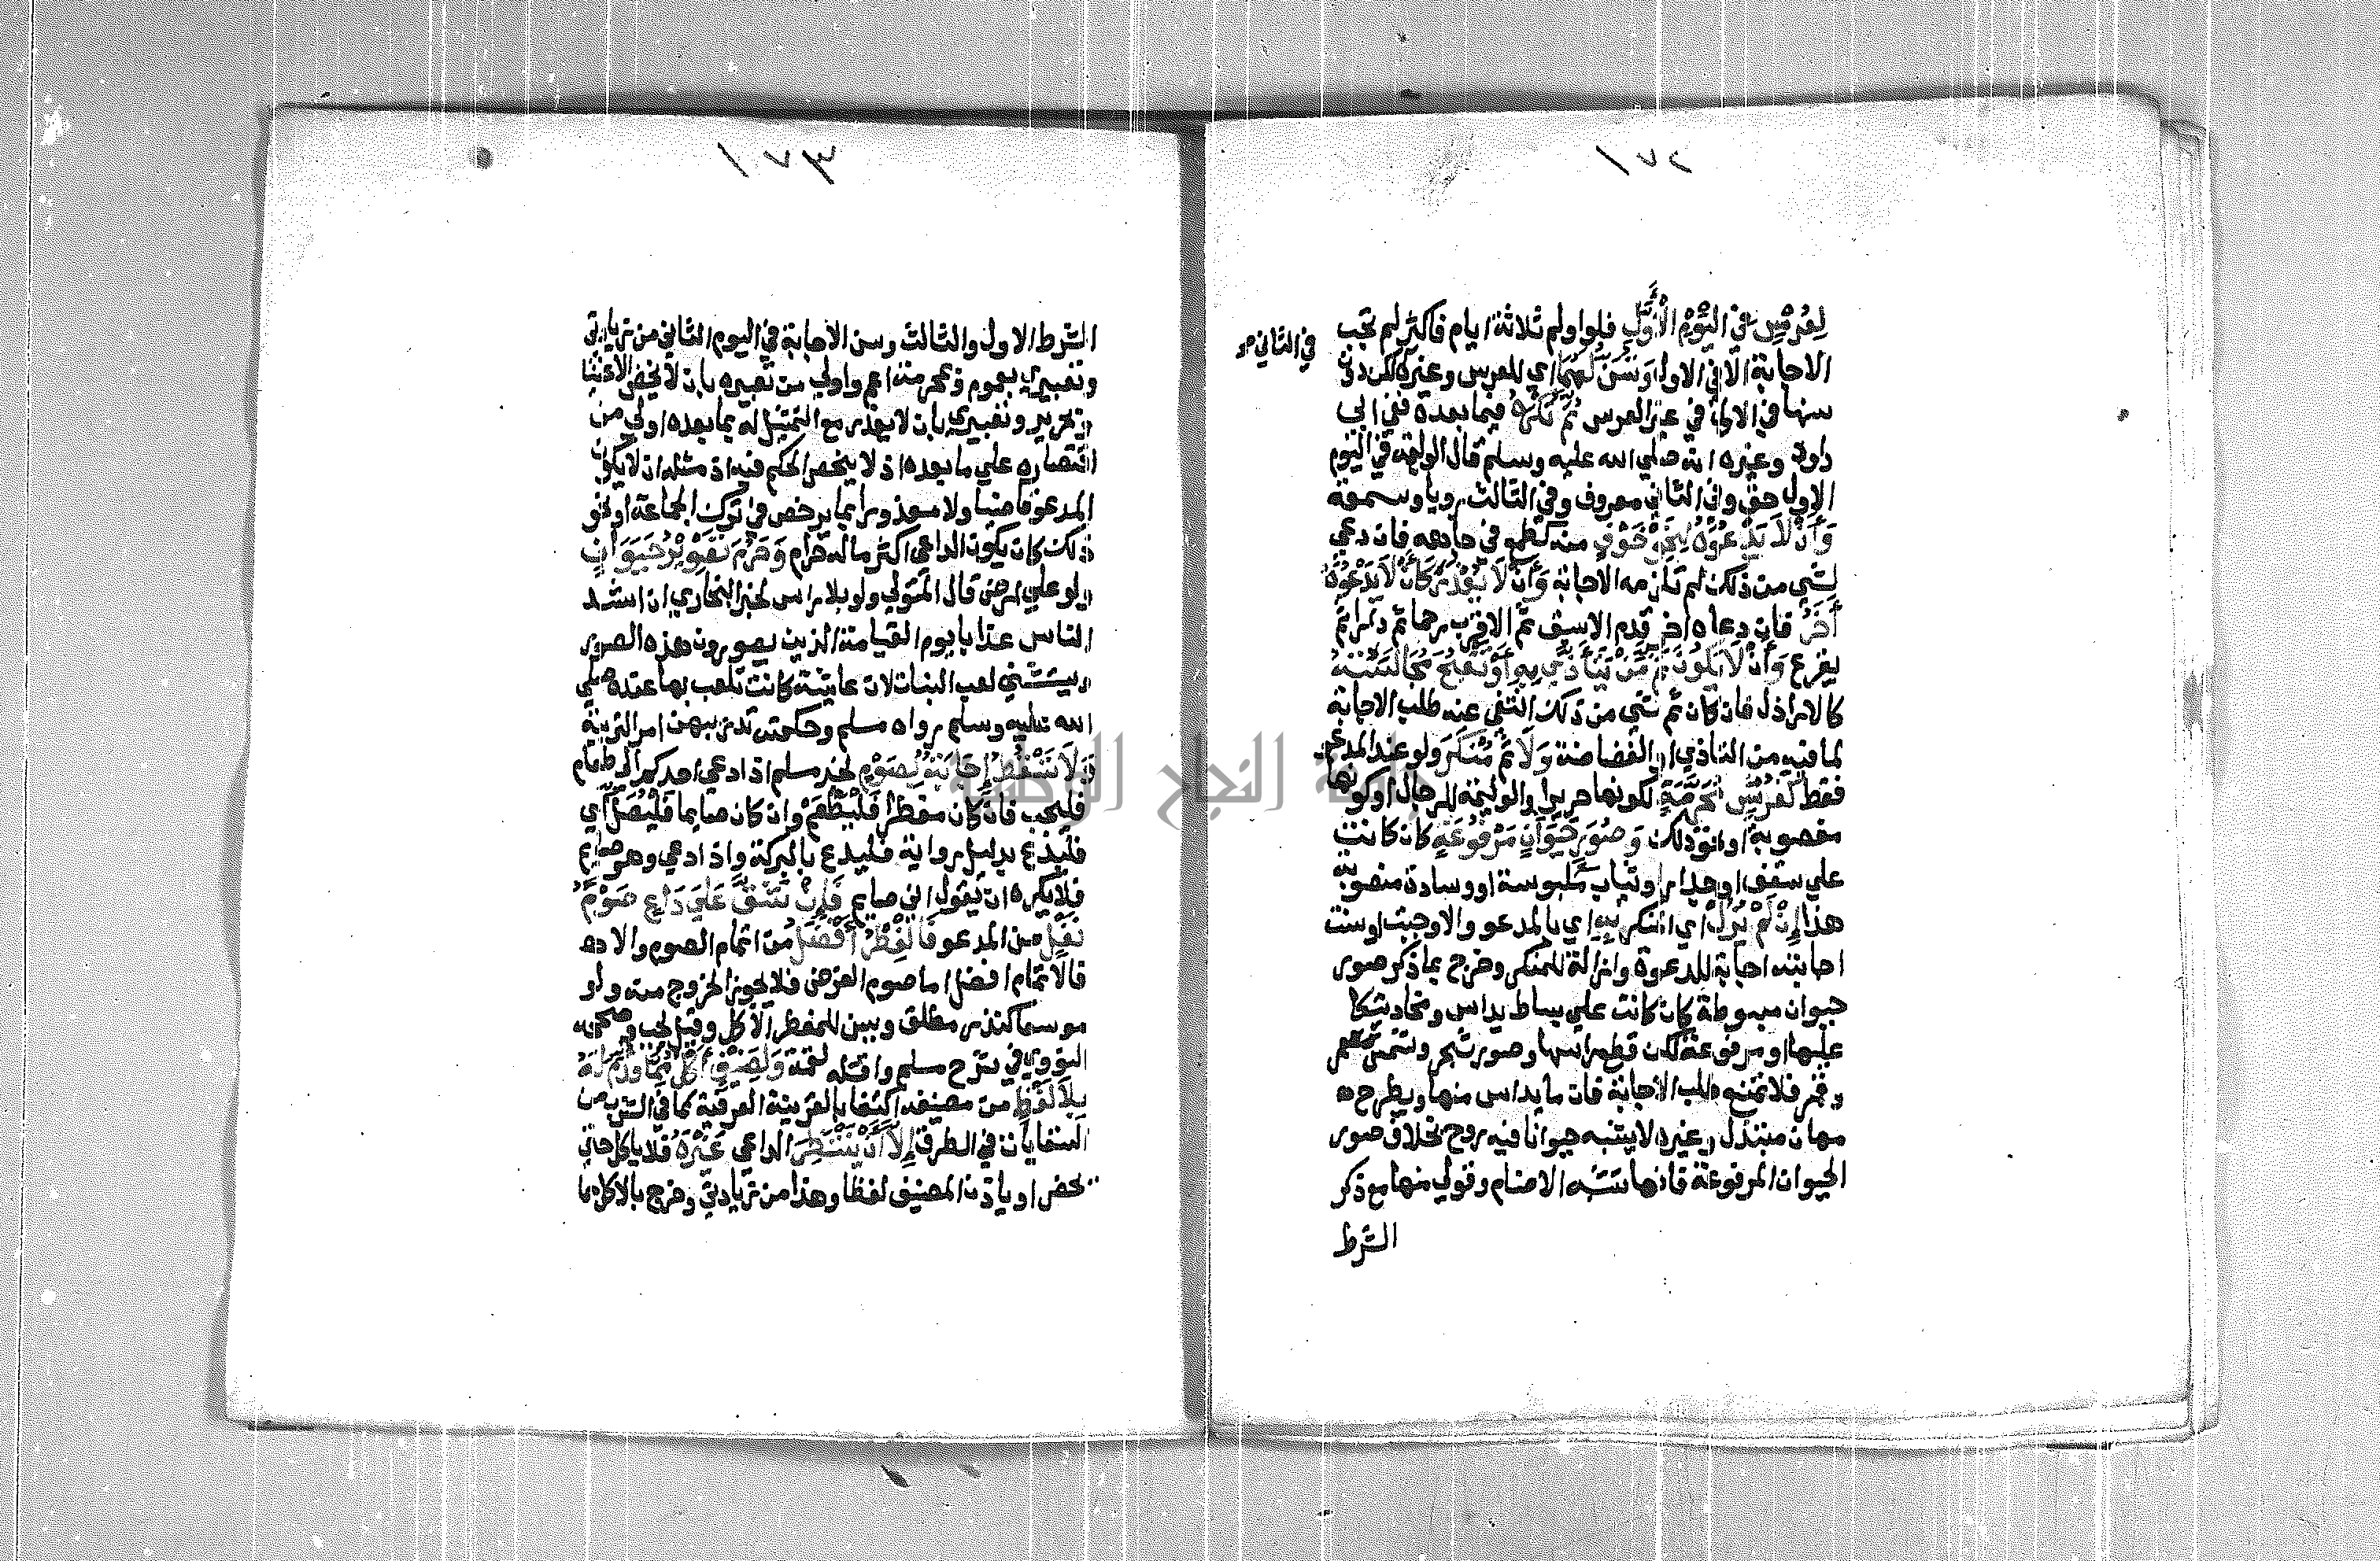 ١٧٢
لِعُرْسٍ في اليَوْمِ الأَوَّلِ فلو اولم ثلاثة ايام فاكثر لم تجب
في الثاني
الاجابة الا في الاول وَتُسَنُّ لَهُمَا اي للعرس وغيره لكن دون
سنها في الاول في غير العرس ثُمَّ تُكْرَهُ فيما بعده ففي ابي
داود وغيره انه صلي الله عليه وسلم قال الوليمة في اليوم
الاول حق وفي الثاني معروف وفي الثالث رويا وسمعة
وَأَنْ لَا يَدْعُوَهُ لِنَحْوِ خَوْفٍ منه كطمع في جاهه فان دعي
لشي من ذلك لم تلزمه الاجابة وَأَنْ لَا يُعْذَرَ كَأَنْ لَا يَدْعُوَهُ
أَخَرُ فان دعاه اخر قدم الاسبق ثم الاقرب رحما ثم دارا ثم
يقرع وَأَنْ لَا يَكُونَ ثَمَّ مَنْ يَتَأَذَّي بِهِ أَوْ تَقْبُحُ مُجَالَسَتُهُ
كالاراذل فان كان ثم شي من ذلك انتفي عنه طلب الاجابة
لما فيه من التاذي او الغضاضة وَلَا ثَمَّ مُنْكَرٌ ولو عند المدعو
فقط كَفُرُشٍ مُحَرَّمَةٍ لكونها حريرا والوليمة للرجال او كونها
مغصوبة او نحو ذلك وَصُوَرِ حَيَوَانٍ مَرْفُوعَةٍ كان كانت
علي سقف او جدار او ثياب ملبوسة او وسادة منصوبة
هذا إِنْ لَمْ يَزُلْ اي المنكر بِهِ اي بالمدعو والا وجبت او سنت
اجابته اجابة للدعوة وازالة للمنكر وخرج بما ذكر صور
حيوان مبسوطة كان كانت علي بساط يداس ومخاد يتكا
عليها او مرفوعة لكن قطع راسها وصور شجر وشمس
وقمر فلا تمنع طلب الاجابة فان ما يداس منها ويطرح
مهان مبتذل وغيره لا يشبه حيوانا فيه روح بخلاف صور
الحيوان المرفوعة فانها تشبه الاصنام وقولي منها مع ذكر
الشرط
١٧٣
الشرط الاول والثالث وسن الاجابة في اليوم الثاني من زيادتي
وتعبيري بمحرمة اعم واولي من تعبيره بان لا يخص الاغنيا
وتعبيري بان لا يعذر مع التمثيل له بما بعده اولي من
اقتصاره علي ما بعده اذ لا ينحصر الحكم فيه اذ مثله ان لا يكون
المدعو قاضيا ولا معذورا بما يرخص في ترك الجماعة او نحو
ذلك كان يكون الداعي اكثر ماله حرام وَحَرُمَ تَصْوِيرُ حَيَوَانٍ
ولو علي ارض قال المتولي ولو بلا راس لخبر البخاري ان اشد
الناس عذابا يوم القيامة الذين يصورون هذه الصور
ويستثني لعب البنات لان عايشة كانت تلعب بها عنده صلي
الله عليه وسلم رواه مسلم وحكمته تدريبهن امر التربية
وَلَا تَسْقُطُ إِجَابَةٌ لِصَوْمٍ لخبر مسلم اذا دعي احدكم الي طعام
فليجب فان كان مفطرا فَلْيَطْعَمْ وان كان صايما فَلْيُصَلِّ اي
فليدع بدليل رواية فليدع بالبركة واذا دعي وهو صايم
فلا يكره ان يقول اني صايم فَإِنْ شَقَّ عَلَي دَاعٍ صَوْمُ
نَفْلٍ من المدعو فَالْفِطْرُ أَفْضَلُ من اتمام الصوم والا
فالاتمام افضل اما صوم الفرض فلا يجوز الخروج منه ولو
موسعا كنذر مطلق ويسن للمفطر الاكل وقيل يجب وصححه
النووي في شرح مسلم واقله لقمة وَلِضَيْفٍ أَكْلٌ مِمَّا قُدِّمَ لَهُ
بِلَا لَفْظٍ من مضيفه اكتفا بالقرينة العرفية كما في الشرب من
السقايات في الطرق إِلَّا أَنْ يَنْتَظِرَ الداعي غَيْرَهُ فلا ياكل حتي
يحضر او ياذن المضيف لفظا وهذا من زيادتي وخرج بالاكل مما